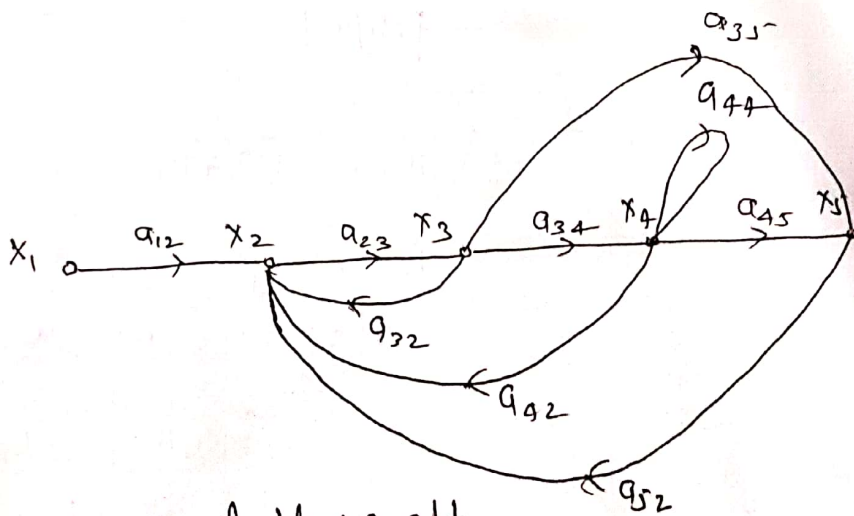 a35
a44
x1 a12 x2 a23 x3 a34 x4 a45 x5
a32
a42
a52